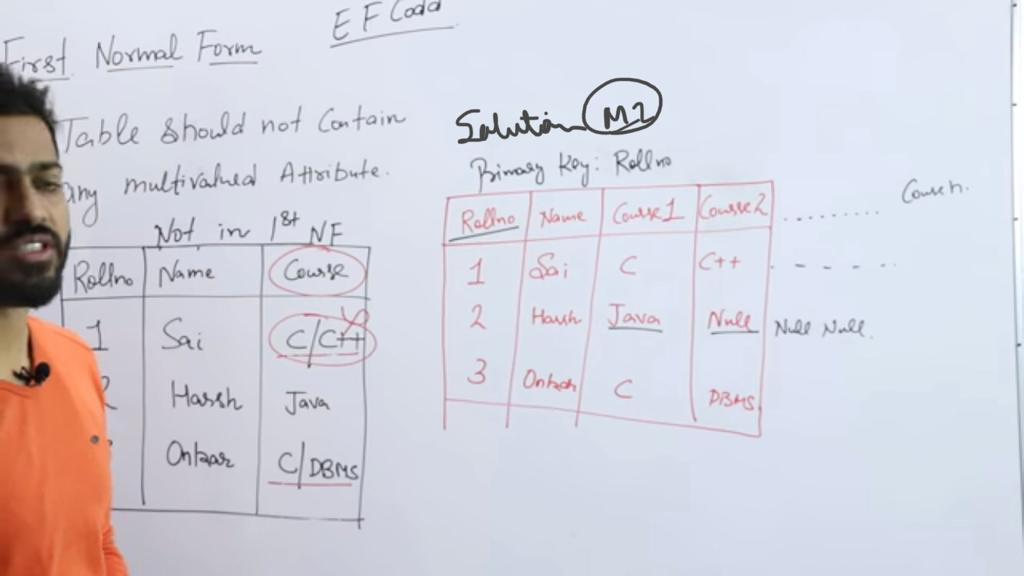 First Normal Form
E F Codd
Table should not Contain
any multivalued Attribute.
Not in 1st NF
Rollno Name Course
1 Sai C/C++
2 Harsh Java
Onkar C/DBMS
Solution M2
Primary Key: Rollno
Rollno Name Course1 Course2 ........ Course n.
1 Sai C C++ - - - - - -
2 Harsh Java Null Null Null.
3 Onkar C DBMS